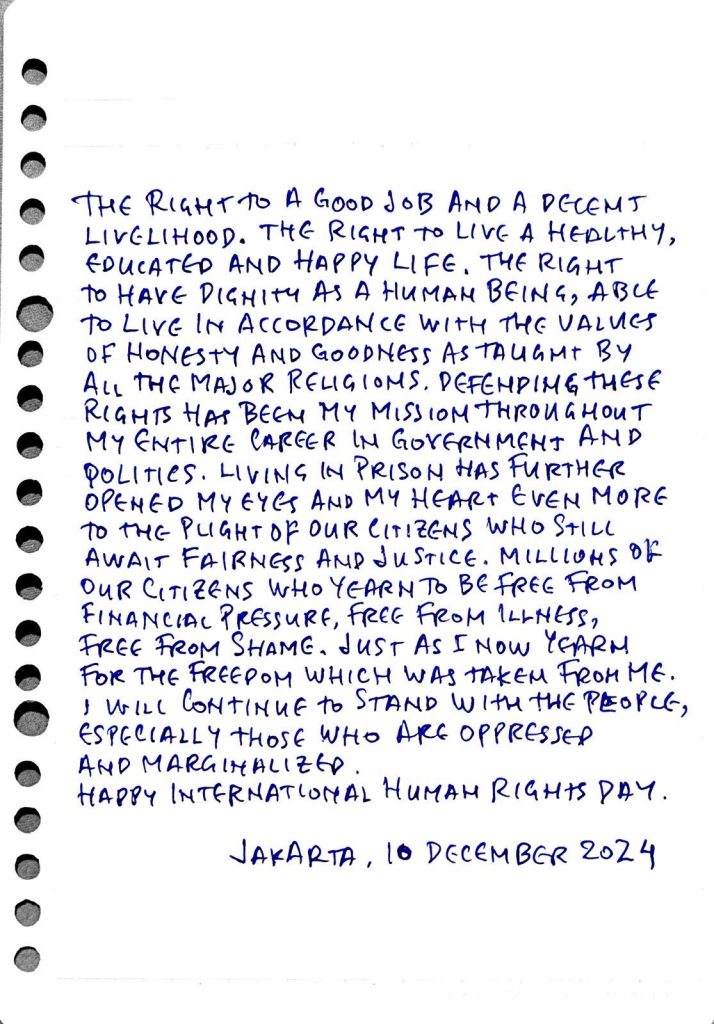 THE RIGHT TO A GOOD JOB AND A DECENT
LIVELIHOOD. THE RIGHT TO LIVE A HEALTHY,
EDUCATED AND HAPPY LIFE. THE RIGHT
TO HAVE DIGNITY AS A HUMAN BEING, ABLE
TO LIVE IN ACCORDANCE WITH THE VALUES
OF HONESTY AND GOODNESS AS TAUGHT BY
ALL THE MAJOR RELIGIONS. DEFENDING THESE
RIGHTS HAS BEEN MY MISSION THROUGHOUT
MY ENTIRE CAREER IN GOVERNMENT AND
POLITICS. LIVING IN PRISON HAS FURTHER
OPENED MY EYES AND MY HEART EVEN MORE
TO THE PLIGHT OF OUR CITIZENS WHO STILL
AWAIT FAIRNESS AND JUSTICE. MILLIONS OF
OUR CITIZENS WHO YEARN TO BE FREE FROM
FINANCIAL PRESSURE, FREE FROM ILLNESS,
FREE FROM SHAME. JUST AS I NOW YEARN
FOR THE FREEDOM WHICH WAS TAKEN FROM ME.
I WILL CONTINUE TO STAND WITH THE PEOPLE,
ESPECIALLY THOSE WHO ARE OPPRESSED
AND MARGINALIZED.
HAPPY INTERNATIONAL HUMAN RIGHTS DAY.
JAKARTA, 10 DECEMBER 2024